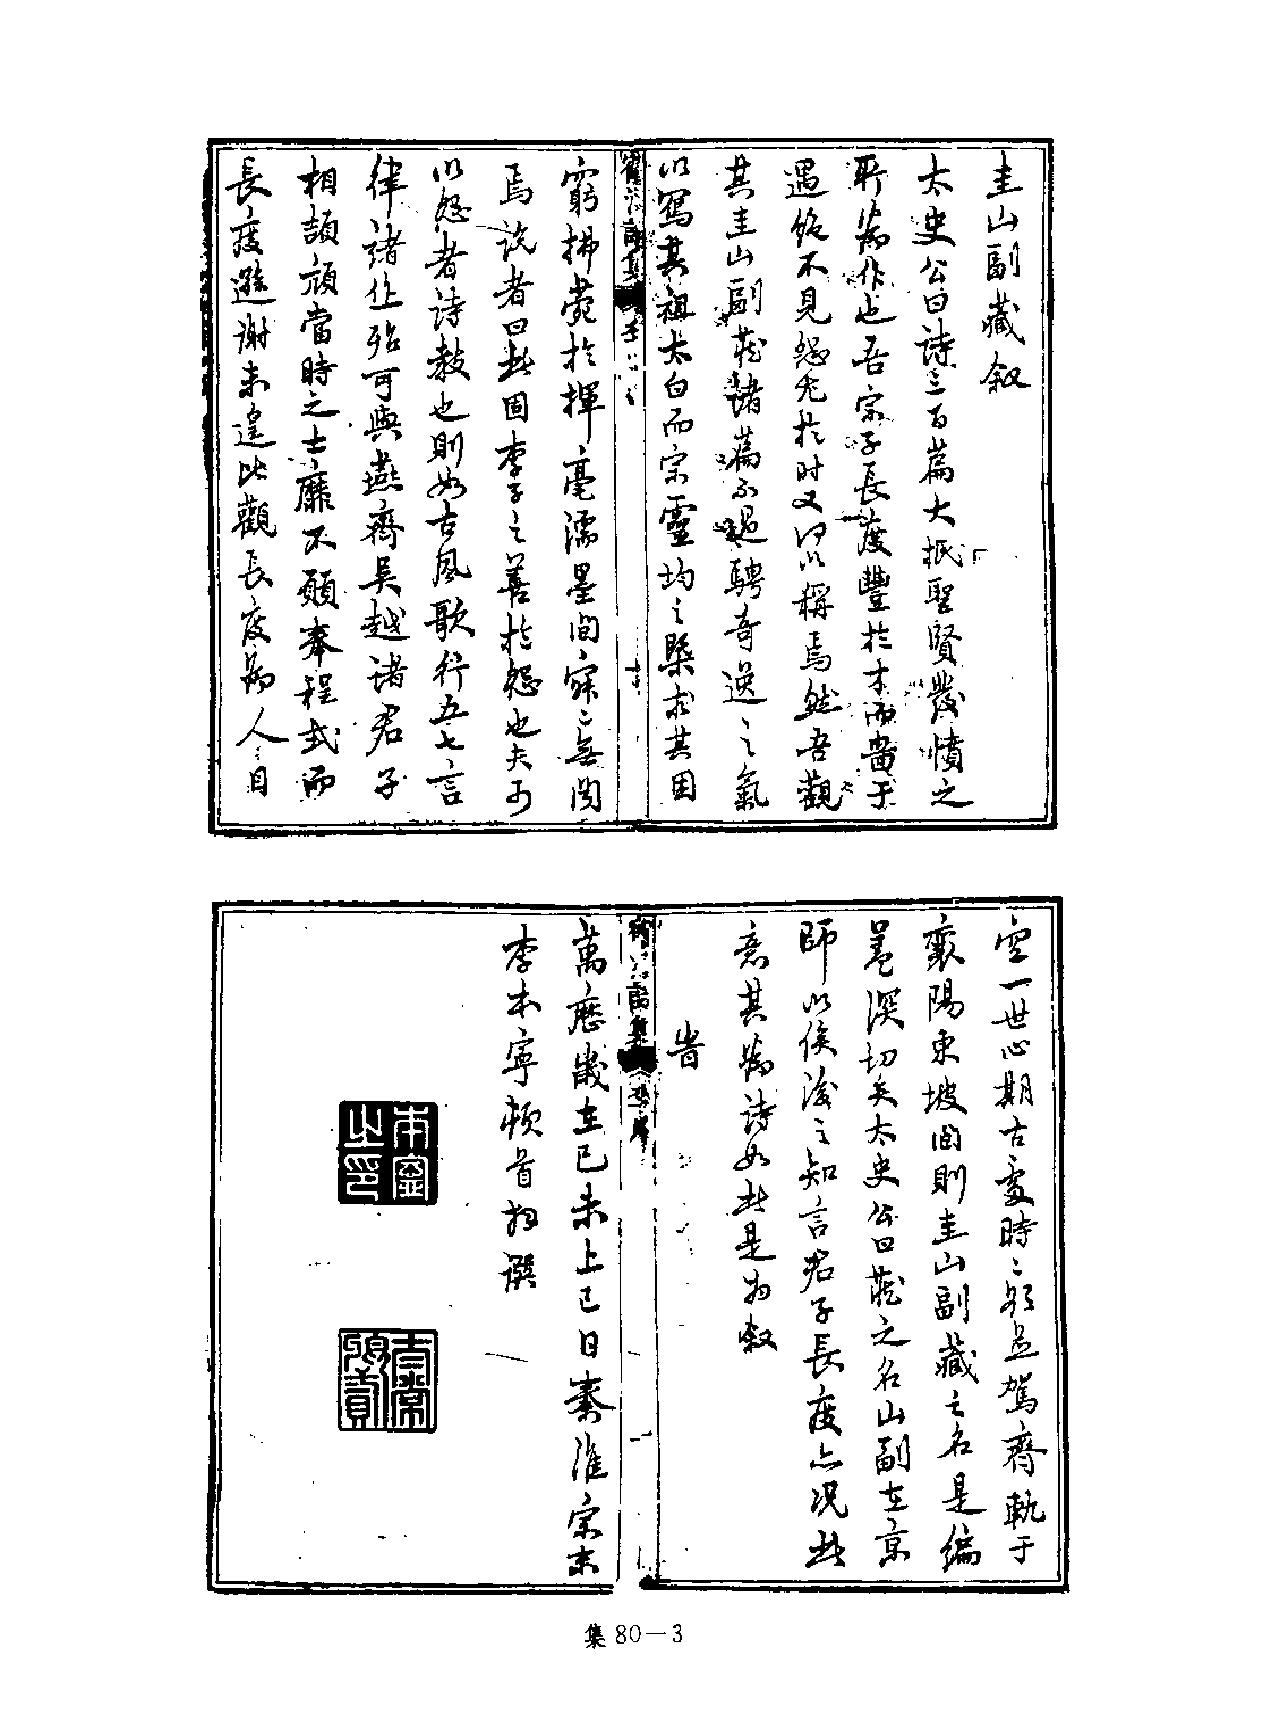 圭山副藏叙
太史公曰詩三百篇大抵聖賢發憤之
所為作也吾宗子長度豐於才而嗇于
遇終不見慍色於时又何以稱焉然吾觀
其圭山副藏諸篇不過騁奇逸之氣
以寫其祖太白而宗靈均之槩于其困
窮拂鬱於揮毫濡墨間寂〻無聞
焉說者曰此固李子之善於怨也夫可
以怨者詩教也則如古風歌行五七言
律諸作殆可與燕齊吳越諸君子
相頡頏當時之士靡不願奉程式而
長度遜謝未遑比觀長度為人〻目
空一世心期古處時〻欲並駕齊軌于
襄陽東坡間則圭山副藏之名是編
甚深切矣太史公曰藏之名山副在京
師以俟後之知言君子長度亦況此
意其為詩如此是為敘
旹
萬歷歲在己未上巳日秦淮宗末
李本寧頓首拜撰
本寧之印
集 80－3